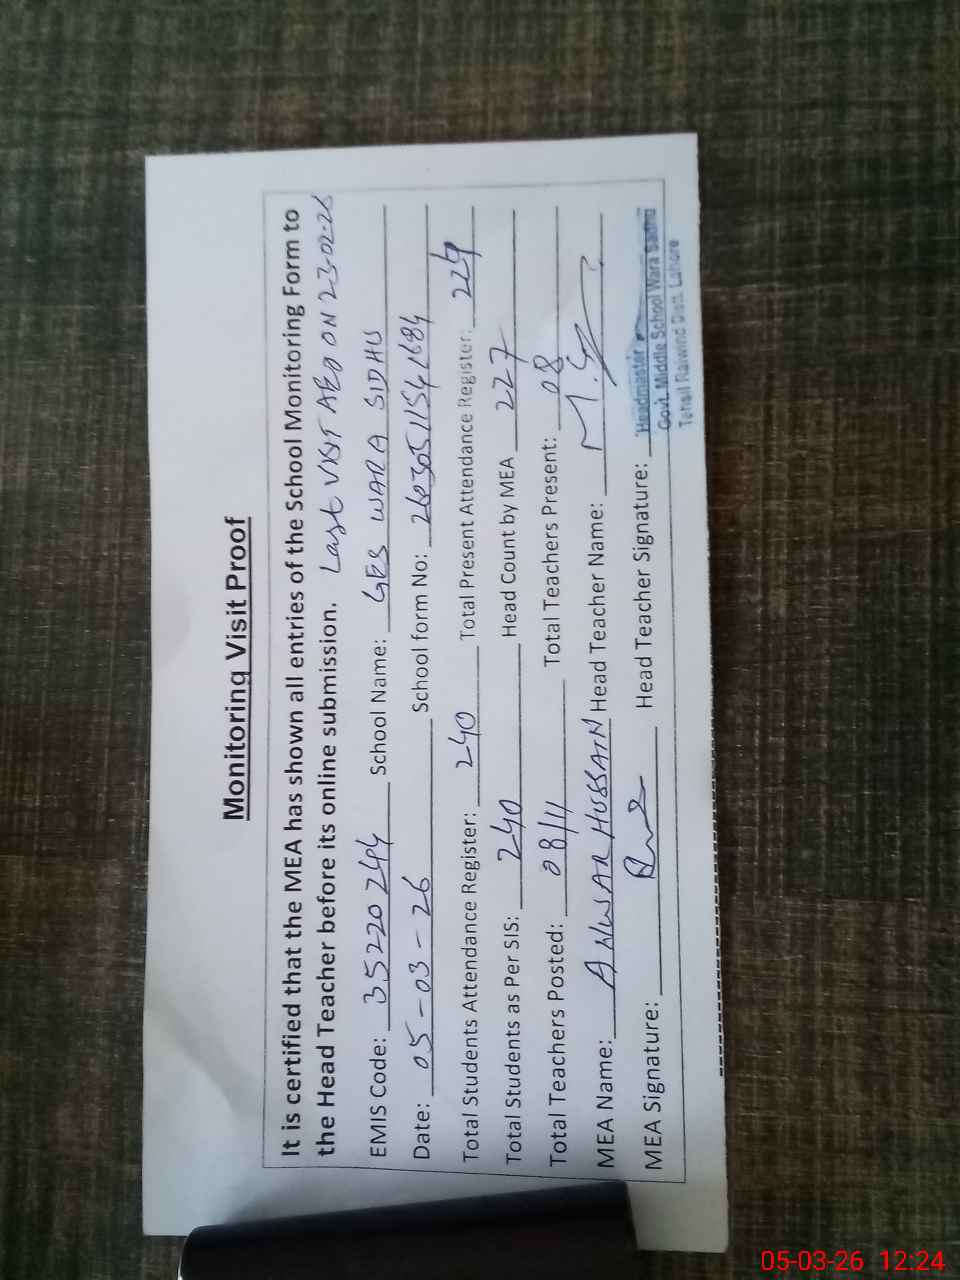 Monitoring Visit Proof
It is certified that the MEA has shown all entries of the School Monitoring Form to
the Head Teacher before its online submission. Last VISIT AEO ON 23-02-26
EMIS Code: 35220244 School Name: GES WARA SIDHU
Date: 05-03-26 School form No:
Total Students Attendance Register: 240 Total Present Attendance Register: 229
Total Students as Per SIS: 240 Head Count by MEA 227
Total Teachers Posted: 08/11 Total Teachers Present: 08
MEA Name: ANWAR HUSSAIN Head Teacher Name:
MEA Signature: Head Teacher Signature:
Headmaster
Govt. Middle School Wara Sadhu
Tehsil Raiwind Distt. Lahore
05-03-26 12:24